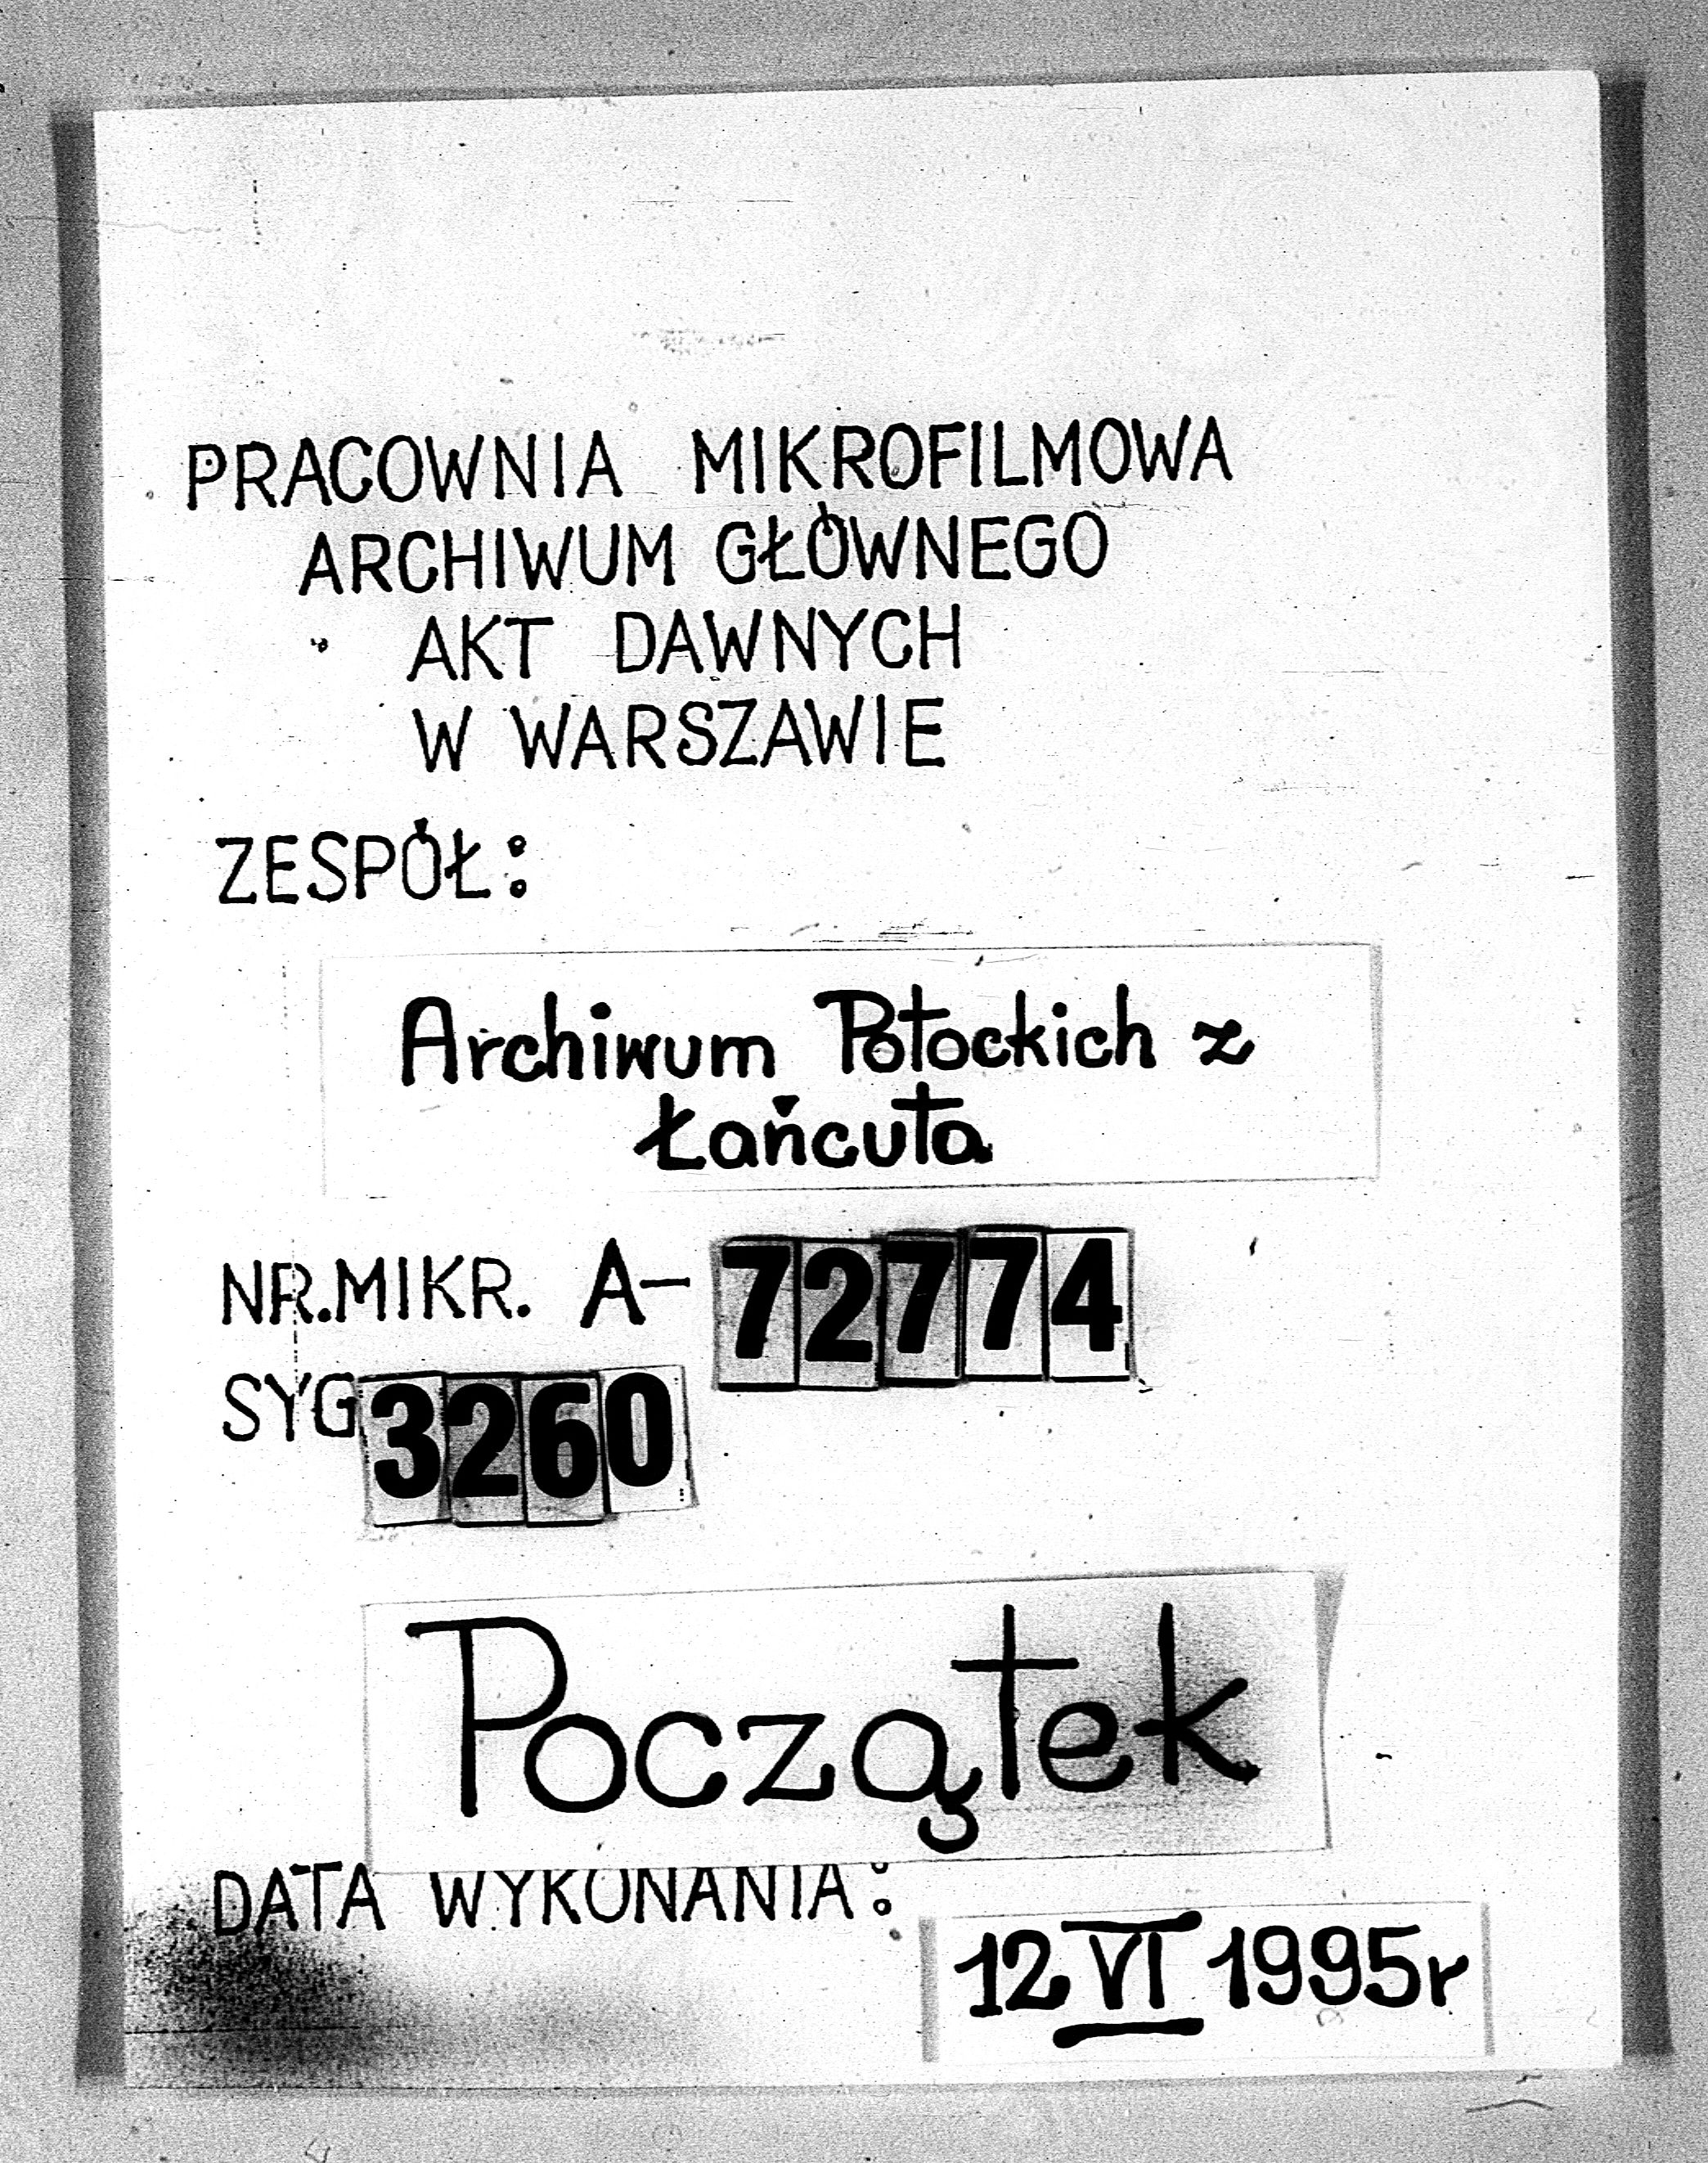 PRACOWNIA MIKROFILMOWA
ARCHIWUM GŁÓWNEGO
AKT DAWNYCH
W WARSZAWIE
ZESPÓŁ:
Archiwum Potockich z
Łańcuta
NR.MIKR. A-72774
SYG 3260
Początek
DATA WYKONANIA:
12 VI 1995r